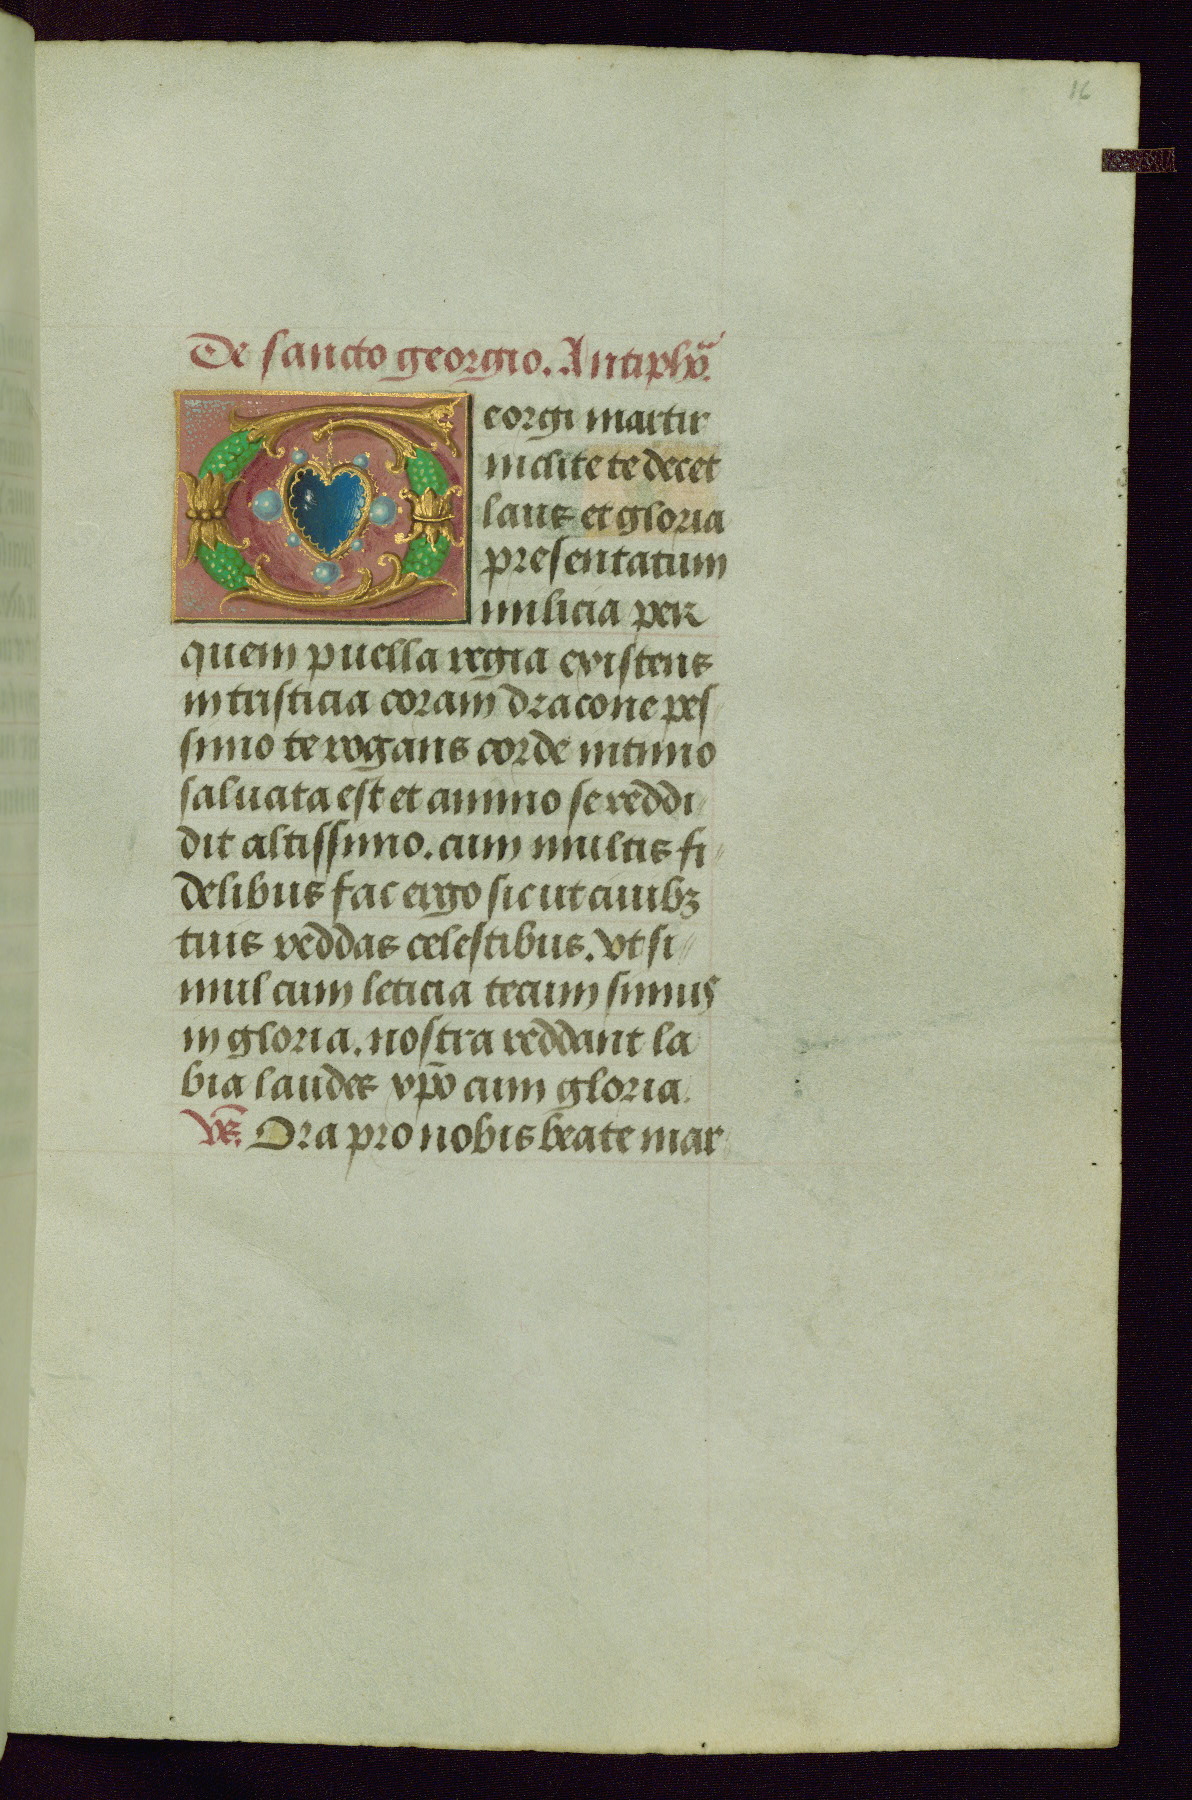 16
De sancto georgio. Antiphōa.
Georgi martir
inclite te decet
laus et gloria
presentatum
milicia per
quem puella regia existens
in tristicia coram dracone pes
simo te rogans corde intimo
saluata est et animo se reddi
dit altissimo. cum multis fi
delibus fac ergo sic ut ciuibꝫ
tuis reddas celestibus. vt si
mul cum leticia tecum simus
in gloria. nostra reddant la
bia laudes xp̄o cum gloria.
V̄s. Ora pro nobis beate mar